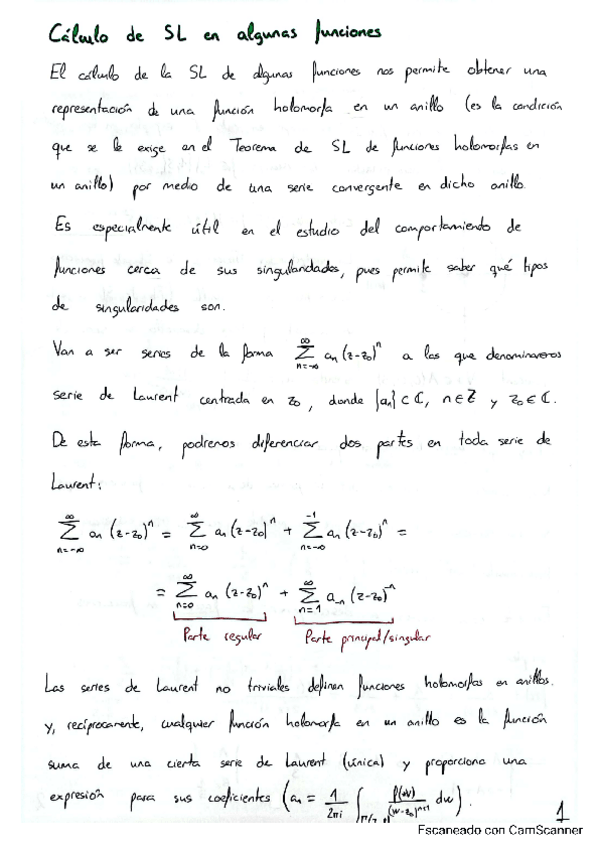 Cálculo de SL en algunas funciones
El cálculo de la SL de algunas funciones nos permite obtener una
representación de una función holomorfa en un anillo (es la condición
que se le exige en el Teorema de SL de funciones holomorfas en
un anillo) por medio de una serie convergente en dicho anillo.
Es especialmente útil en el estudio del comportamiento de
funciones cerca de sus singularidades, pues permite saber qué tipos
de singularidades son.
Van a ser series de la forma ∑_{n=-∞}^{∞} an (z-z0)^n a las que denominaremos
serie de Laurent centrada en z0, donde {an} ⊂ ℂ, n∈ℤ y z0∈ℂ.
De esta forma, podremos diferenciar dos partes en toda serie de
Laurent:
∑_{n=-∞}^{∞} an (z-z0)^n = ∑_{n=0}^{∞} an (z-z0)^n + ∑_{n=-∞}^{-1} an (z-z0)^n =
= ∑_{n=0}^{∞} an (z-z0)^n + ∑_{n=1}^{∞} a-n (z-z0)^-n
Parte regular Parte principal/singular
Las series de Laurent no triviales definen funciones holomorfas en anillos.
y, recíprocamente, cualquier función holomorfa en un anillo es la función
suma de una cierta serie de Laurent (única) y proporciona una
expresión para sus coeficientes (an = 1/2πi ∫ f(w)/(w-z0)^{n+1} dw).
1
Escaneado con CamScanner